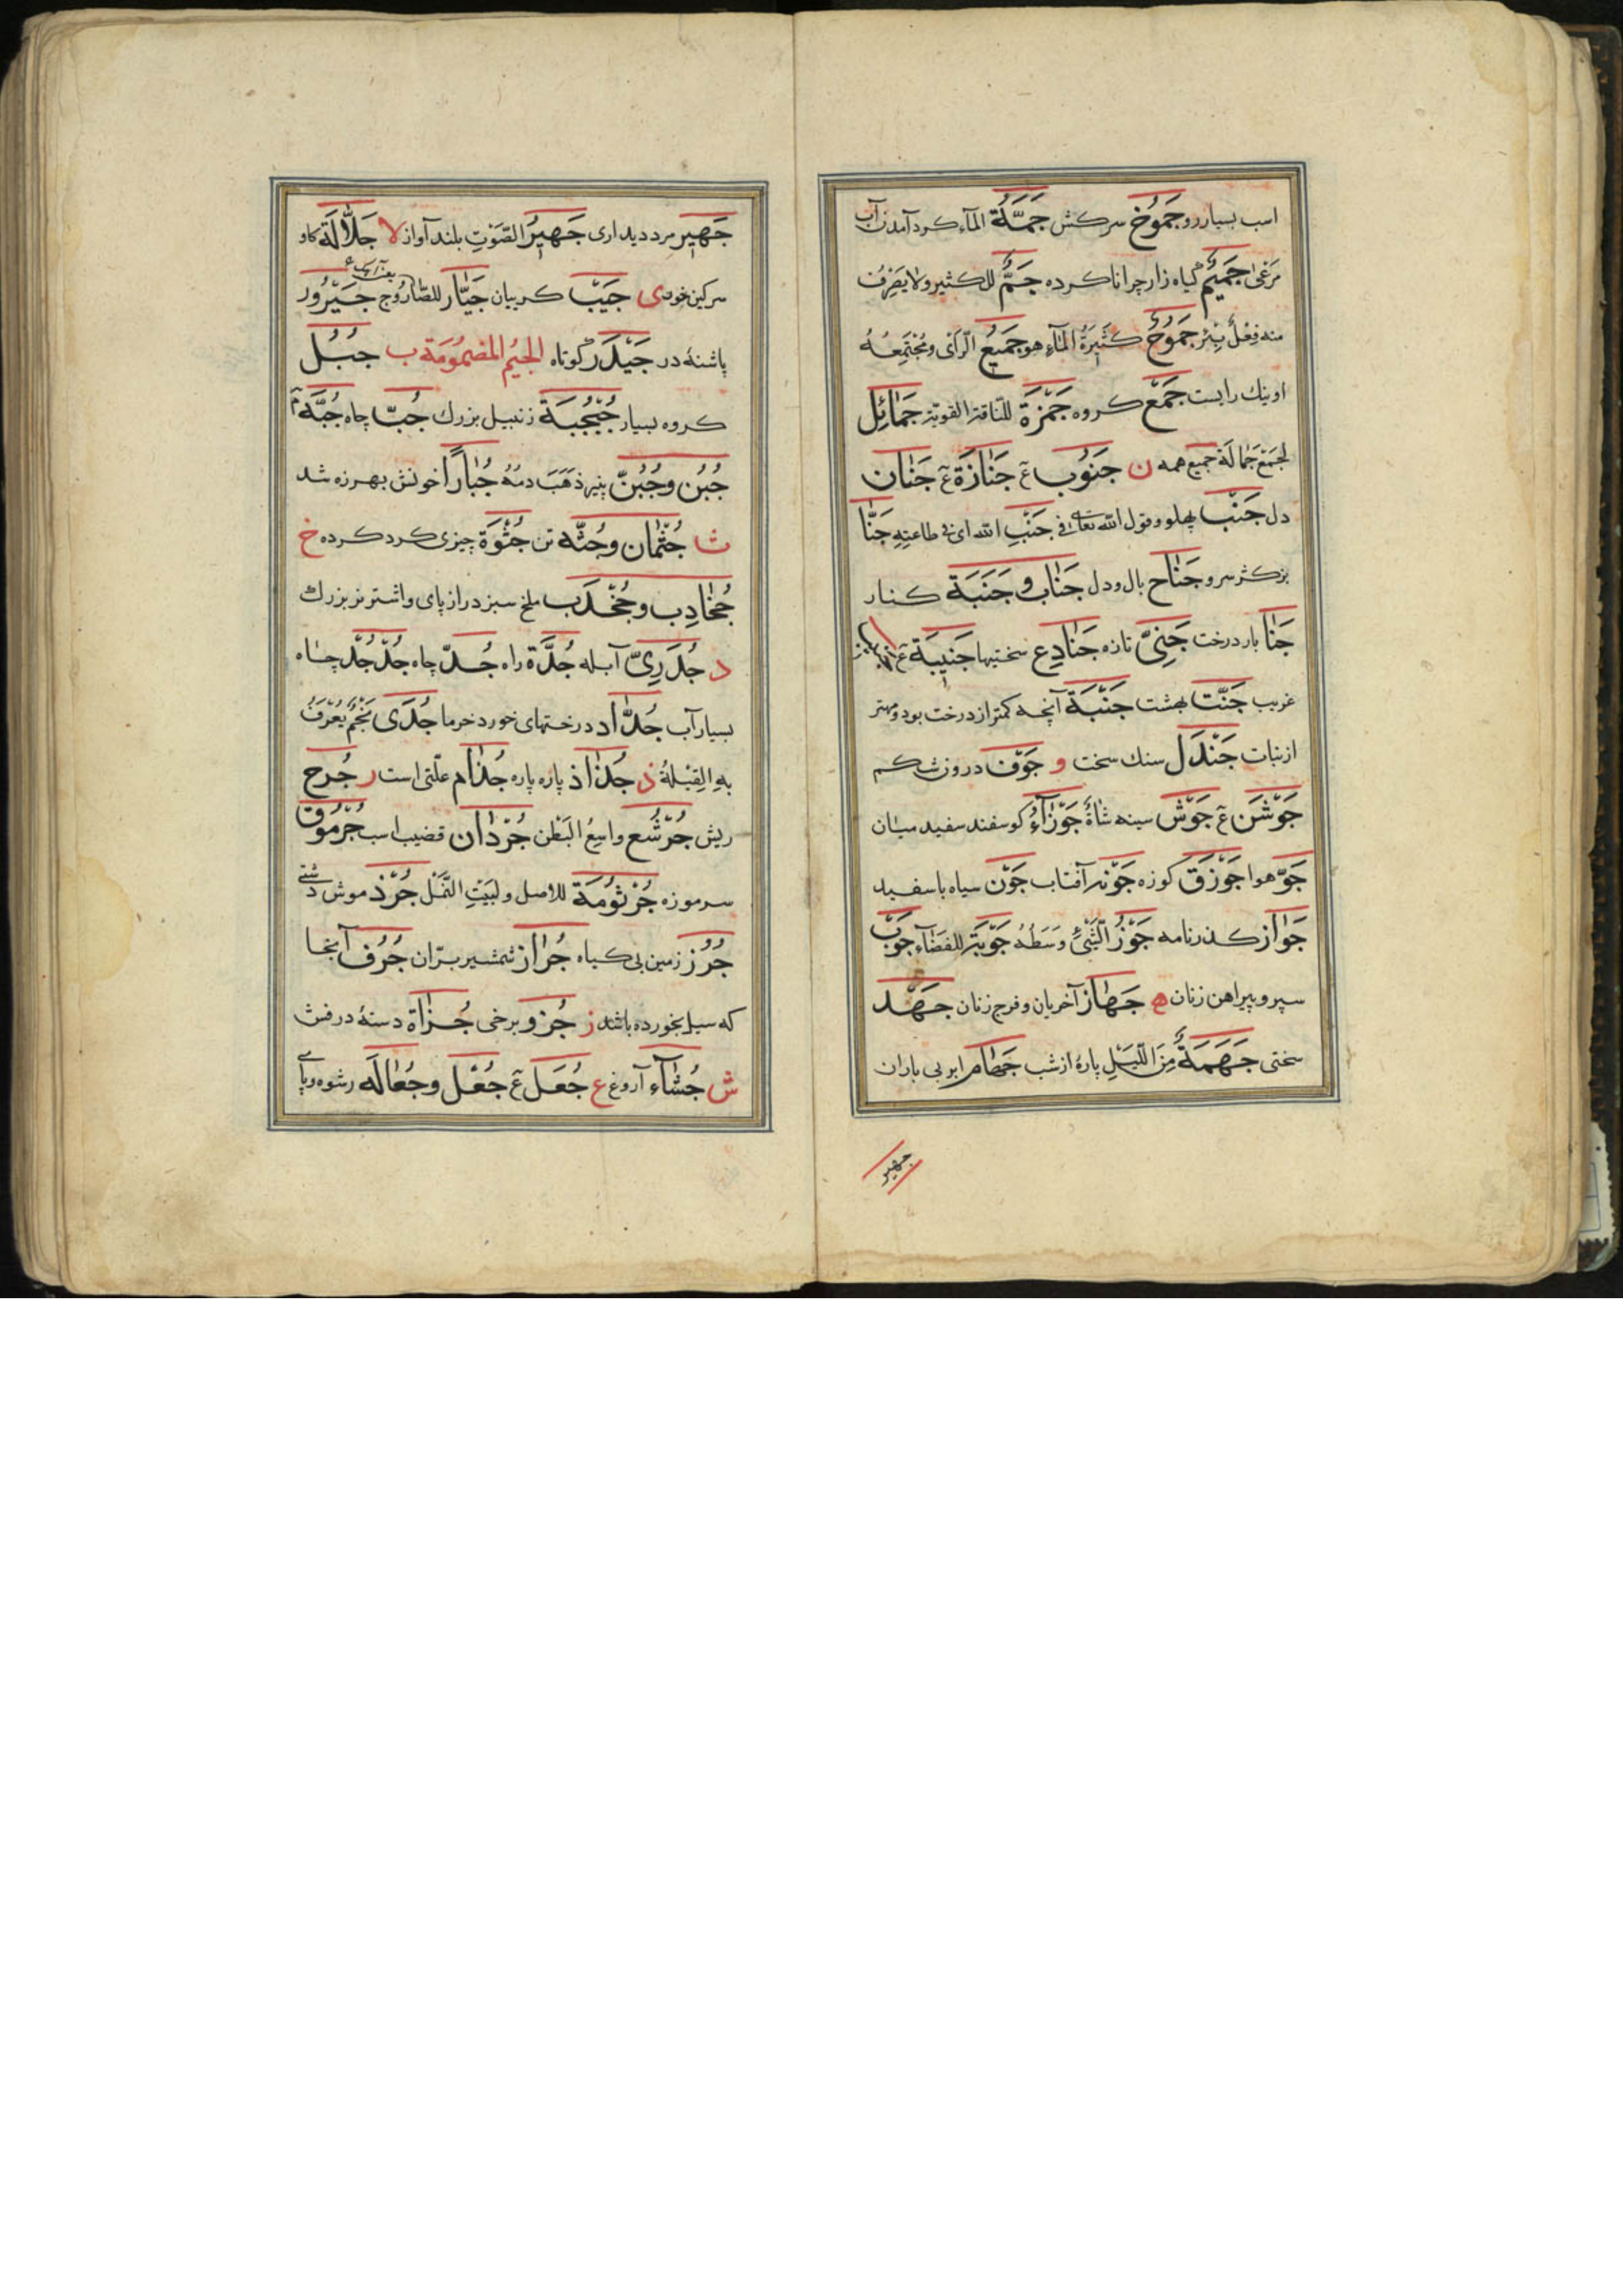 اسب بسیار رو جَمُوخ سرکش جَمَّلَة المآء کرد آمدن آب
مَرْعیٰ جَمِیْمٌ کیاه زار چرا ناکرده جَمٌّ للکثیر ولا یصرف
منه فِعْلٌ بِئرٌ جَمُوحٌ کَثیرَةُ المآءِ هو جَمیعُ الرّأیِ ومُجْتَمِعُهُ
او نیک رایست جَمْع کروه جَمْزَة للنّاقة القویّة جَمائِل
لجمْع جَمالَة جمیع همه ن جَنُوب ع جَنازَة ع جَنان
دل جَنْب پهلو و قول الله تعالی فی جَنْبِ الله ای فی طاعتِهِ جَنَّا
بزکثر سرو جَناح بال و دل جَناب و جَنَبَة کنار
جَنا بار درخت جَنِیّ تازه جَنادِع سختیها جَنیبَة ع
غریب جَنَّت بهشت جَنْبَة آنچه کمتر از درخت بود و مهتر
از نبات جَنْدَل سنك سخت و جَوْف درون شکم
جَوْشَن ع جَوْش سینه شاةٌ جَوْزآءُ کوسفند سفید میان
جَوّ هوا جَوْزَق کوزه جَوْنه آفتاب جَوْن سیاه با سفید
جَواز کذرنامه جَوْزُ الشَّیْئِ وَسَطُهُ جَوْبَة للفضآء جَوْب
سپر و پیراهن زنان ه جَهاز آخریان و فرج زنان جَهْد
سختی جَهَمَةٌ مِنَ اللَّیْلِ پارهٔ از شب جَهام ابر بی باران
جهیر
جَهیر مرد دیداری جَهیرُ الصَّوْتِ بلند آواز لا جَلّالَة کاو
سرکین خور ی جَیْب کریبان جَیّار للصّارُوج جَیْرُور
پاشنهٔ در جَیْدَر کوتاه الجیُم المضمُومَة ب جُبُل
کروه بسیار جُبْجُبَة زنبیل بزرك جُبّ چاه جُبَّه م
جُبْن وجُبُنّ پنیر ذَهَبَ دمُهُ جُبارًا خونش بهرزه شد
ث جُثْمان و جُثَّه تن جُثْوَة چیزی کرد کرده خ
جُخادِب و جُخْدَب ملخ سبز دراز پای و اشتر نر بزرك
د جُدَرِیّ آبله جُدَّة راه جُدّ چاه جُدّجُدّ چاه
بسیار آب جُدّاد درختهای خورد خرما جُدَی نَجْمٌ یُعْرَفُ
بِهِ القِبْلةُ ذ جُذاذ پاره پاره جُذام علّتی است ر جُرح
ریش جُرْشُع واسِعُ البَطْن جُرْدان قضیب اسب جُرْمُوق
سرموزه جُرْثُومَة للاصل ولبَیْتِ النَّمْل جُرْذ موش دشتی
جُرُز زمین بی کیاه جُراز شمشیر برّان جُرُف آنجا
که سیل بخورده باشد ز جُزو برخی جُزاة دستهٔ درفش
ش جُشآء آروغ ع جُعَل ع جُعْل و جُعالَه رشوه و پا